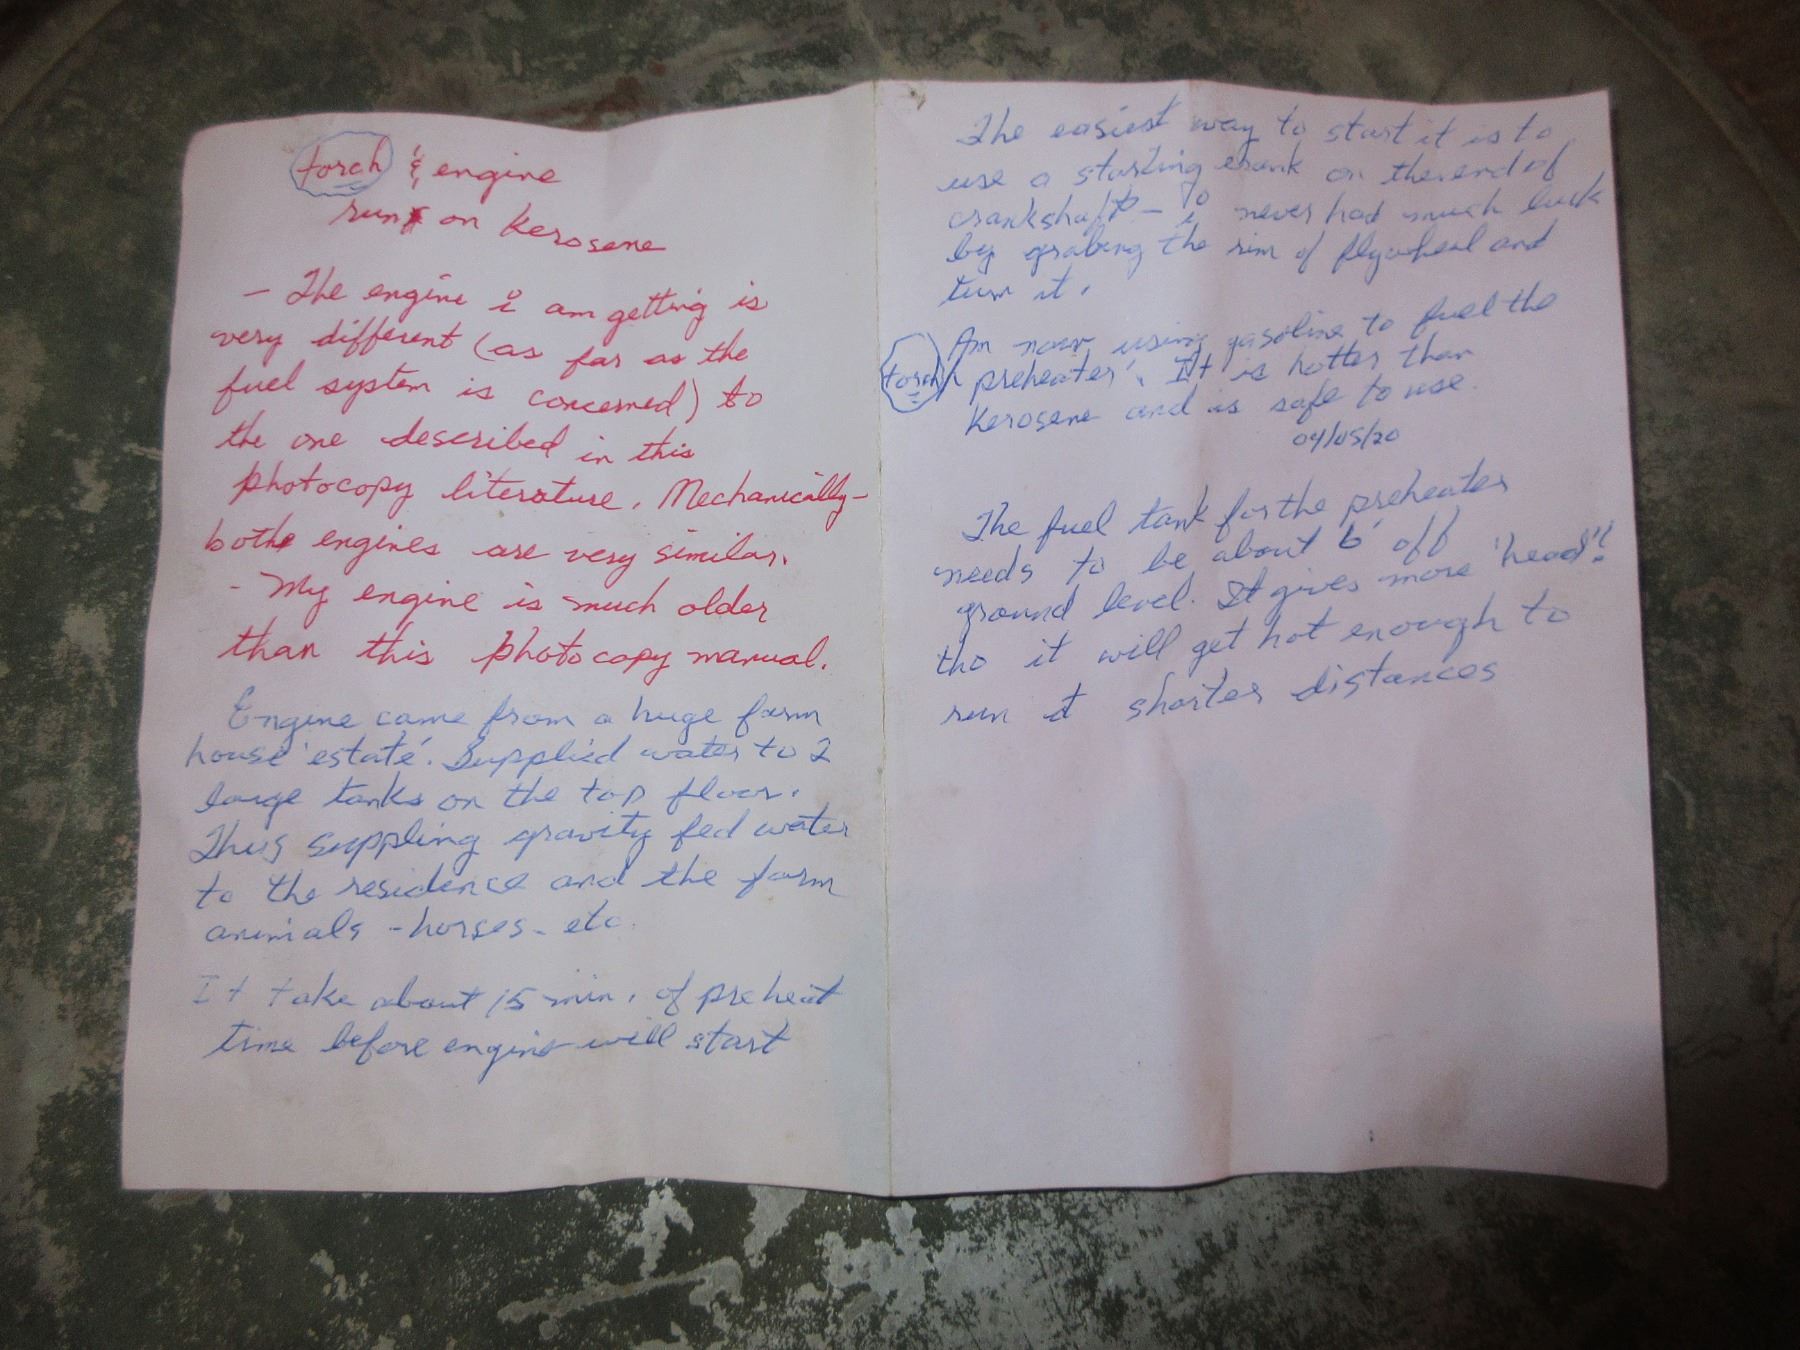 torch & engine
run on kerosene
- The engine i am getting is
very different (as far as the
fuel system is concerned) to
the one described in this
photocopy literature. Mechanically-
both engines are very similar.
- My engine is much older
than this photocopy manual.
Engine came from a huge farm
house 'estate'. Supplied water to 2
large tanks on the top floor.
Thus suppling gravity fed water
to the residence and the farm
animals - horses - etc.
It take about 15 min. of preheat
time before engine will start
The easiest way to start it is to
use a starting crank on the end of
crankshaft - i never had much luck
by grabing the rim of flywheel and
turn it.
Am now using gasoline to fuel the
torch 'preheater'. It is hotter than
kerosene and is safe to use.
04/05/20
The fuel tank for the preheater
needs to be about 6' off
ground level. It gives more 'head'!
tho it will get hot enough to
run it shorter distances